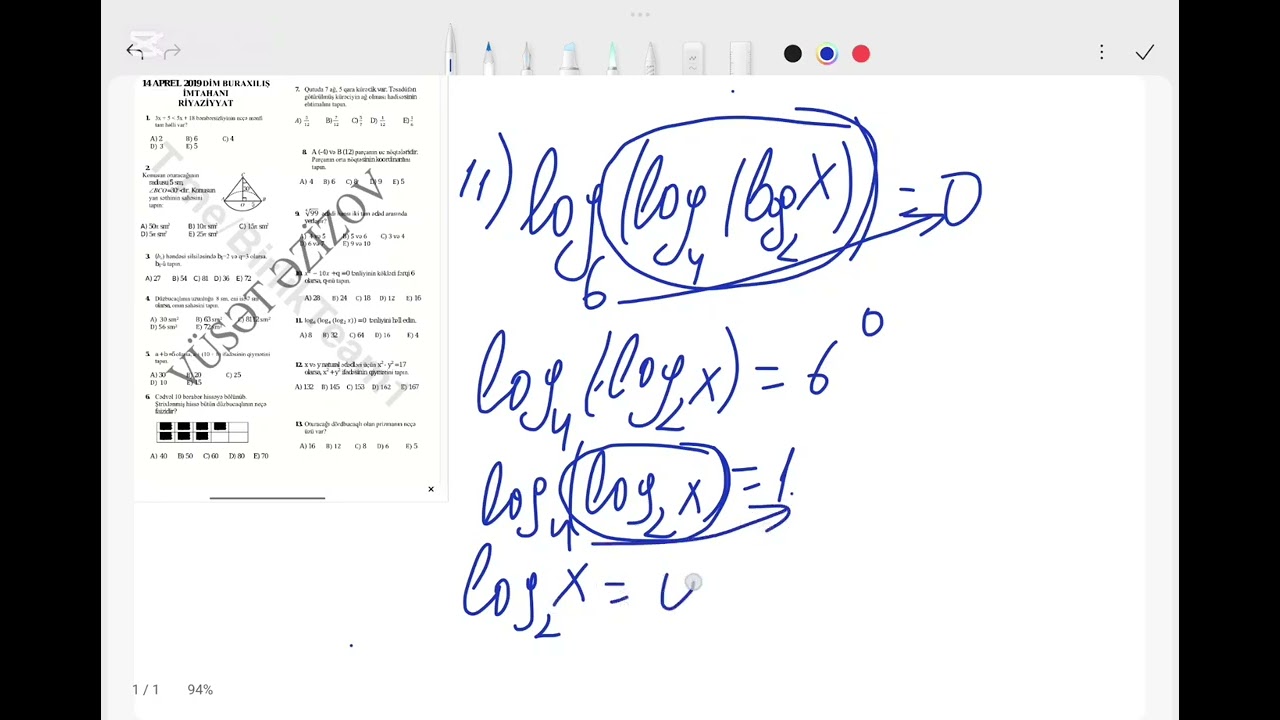 14 APREL 2019 DİM BURAXILIŞ
İMTAHANI
RİYAZİYYAT
1. 3x + 5 < 5x + 18 bərabərsizliyinin neçə mənfi
tam həlli var?
A) 2 B) 6 C) 4
D) 3 E) 5
2.
Konusun oturacağının
radiusu 5 sm,
∠BCO=30°-dir. Konusun
yan səthinin sahəsini
tapın:
A) 50π sm² B) 10π sm² C) 15π sm²
D) 5π sm² E) 25π sm²
3. (bₙ) həndəsi silsiləsində
olarsa,
tapın.
A) 27 B) 54 C) 81 D) 36 E) 72
4. Düzbucaqlının uzunluğu 8 sm, eni
olarsa, onun sahəsini tapın.
A) 30 sm² B) 63 sm²
D) 56 sm² E) 72 sm²
5. a + b = 6
ifadəsinin qiymətini
tapın.
A) 30 B) 20 C) 25
D) 10 E) 15
6. Cədvəl 10 bərabər hissəyə bölünüb.
Ştrixlənmiş hissə bütün düzbucaqlının neçə
faizidir?
A) 40 B) 50 C) 60 D) 80 E) 70
7. Qutuda 7 ağ, 5 qara kürəcik var. Təsadüfən
götürülmüş kürəciyin ağ olması hadisəsinin
ehtimalını tapın.
8. A (-4) və B (12) parçanın uc nöqtələridir.
Parçanın orta nöqtəsinin koordinatını
tapın.
A) 4 B) 6 C) 8 D) 9 E) 5
9. √99 ədədi hansı iki tam ədəd arasında
yerləşir?
A) 4 və 5 B) 5 və 6 C) 3 və 4
D) 6 və 7 E) 9 və 10
10. x² − 10x + q = 0 tənliyinin kökləri fərqi 6
olarsa, q-nü tapın.
A) 28 B) 24 C) 18 D) 12 E) 16
11. log₆ (log₄ (log₂ x)) = 0 tənliyini həll edin.
A) 8 B) 32 C) 64 D) 16 E) 4
12. x və y natural ədədləri üçün x² - y² = 17
olarsa, x² + y² ifadəsinin qiymətini tapın.
A) 132 B) 145 C) 153 D) 162 E) 167
13. Oturacağı dördbucaqlı olan prizmanın neçə
üzü var?
A) 16 B) 12 C) 8 D) 6 E) 5
VÜSƏT ƏZİZOV
11) log₆ (log₄ (log₂ x)) = 0
log₄ (log₂ x) = 6⁰
log₄ (log₂ x) = 1
log₂ x =
1 / 1 94%